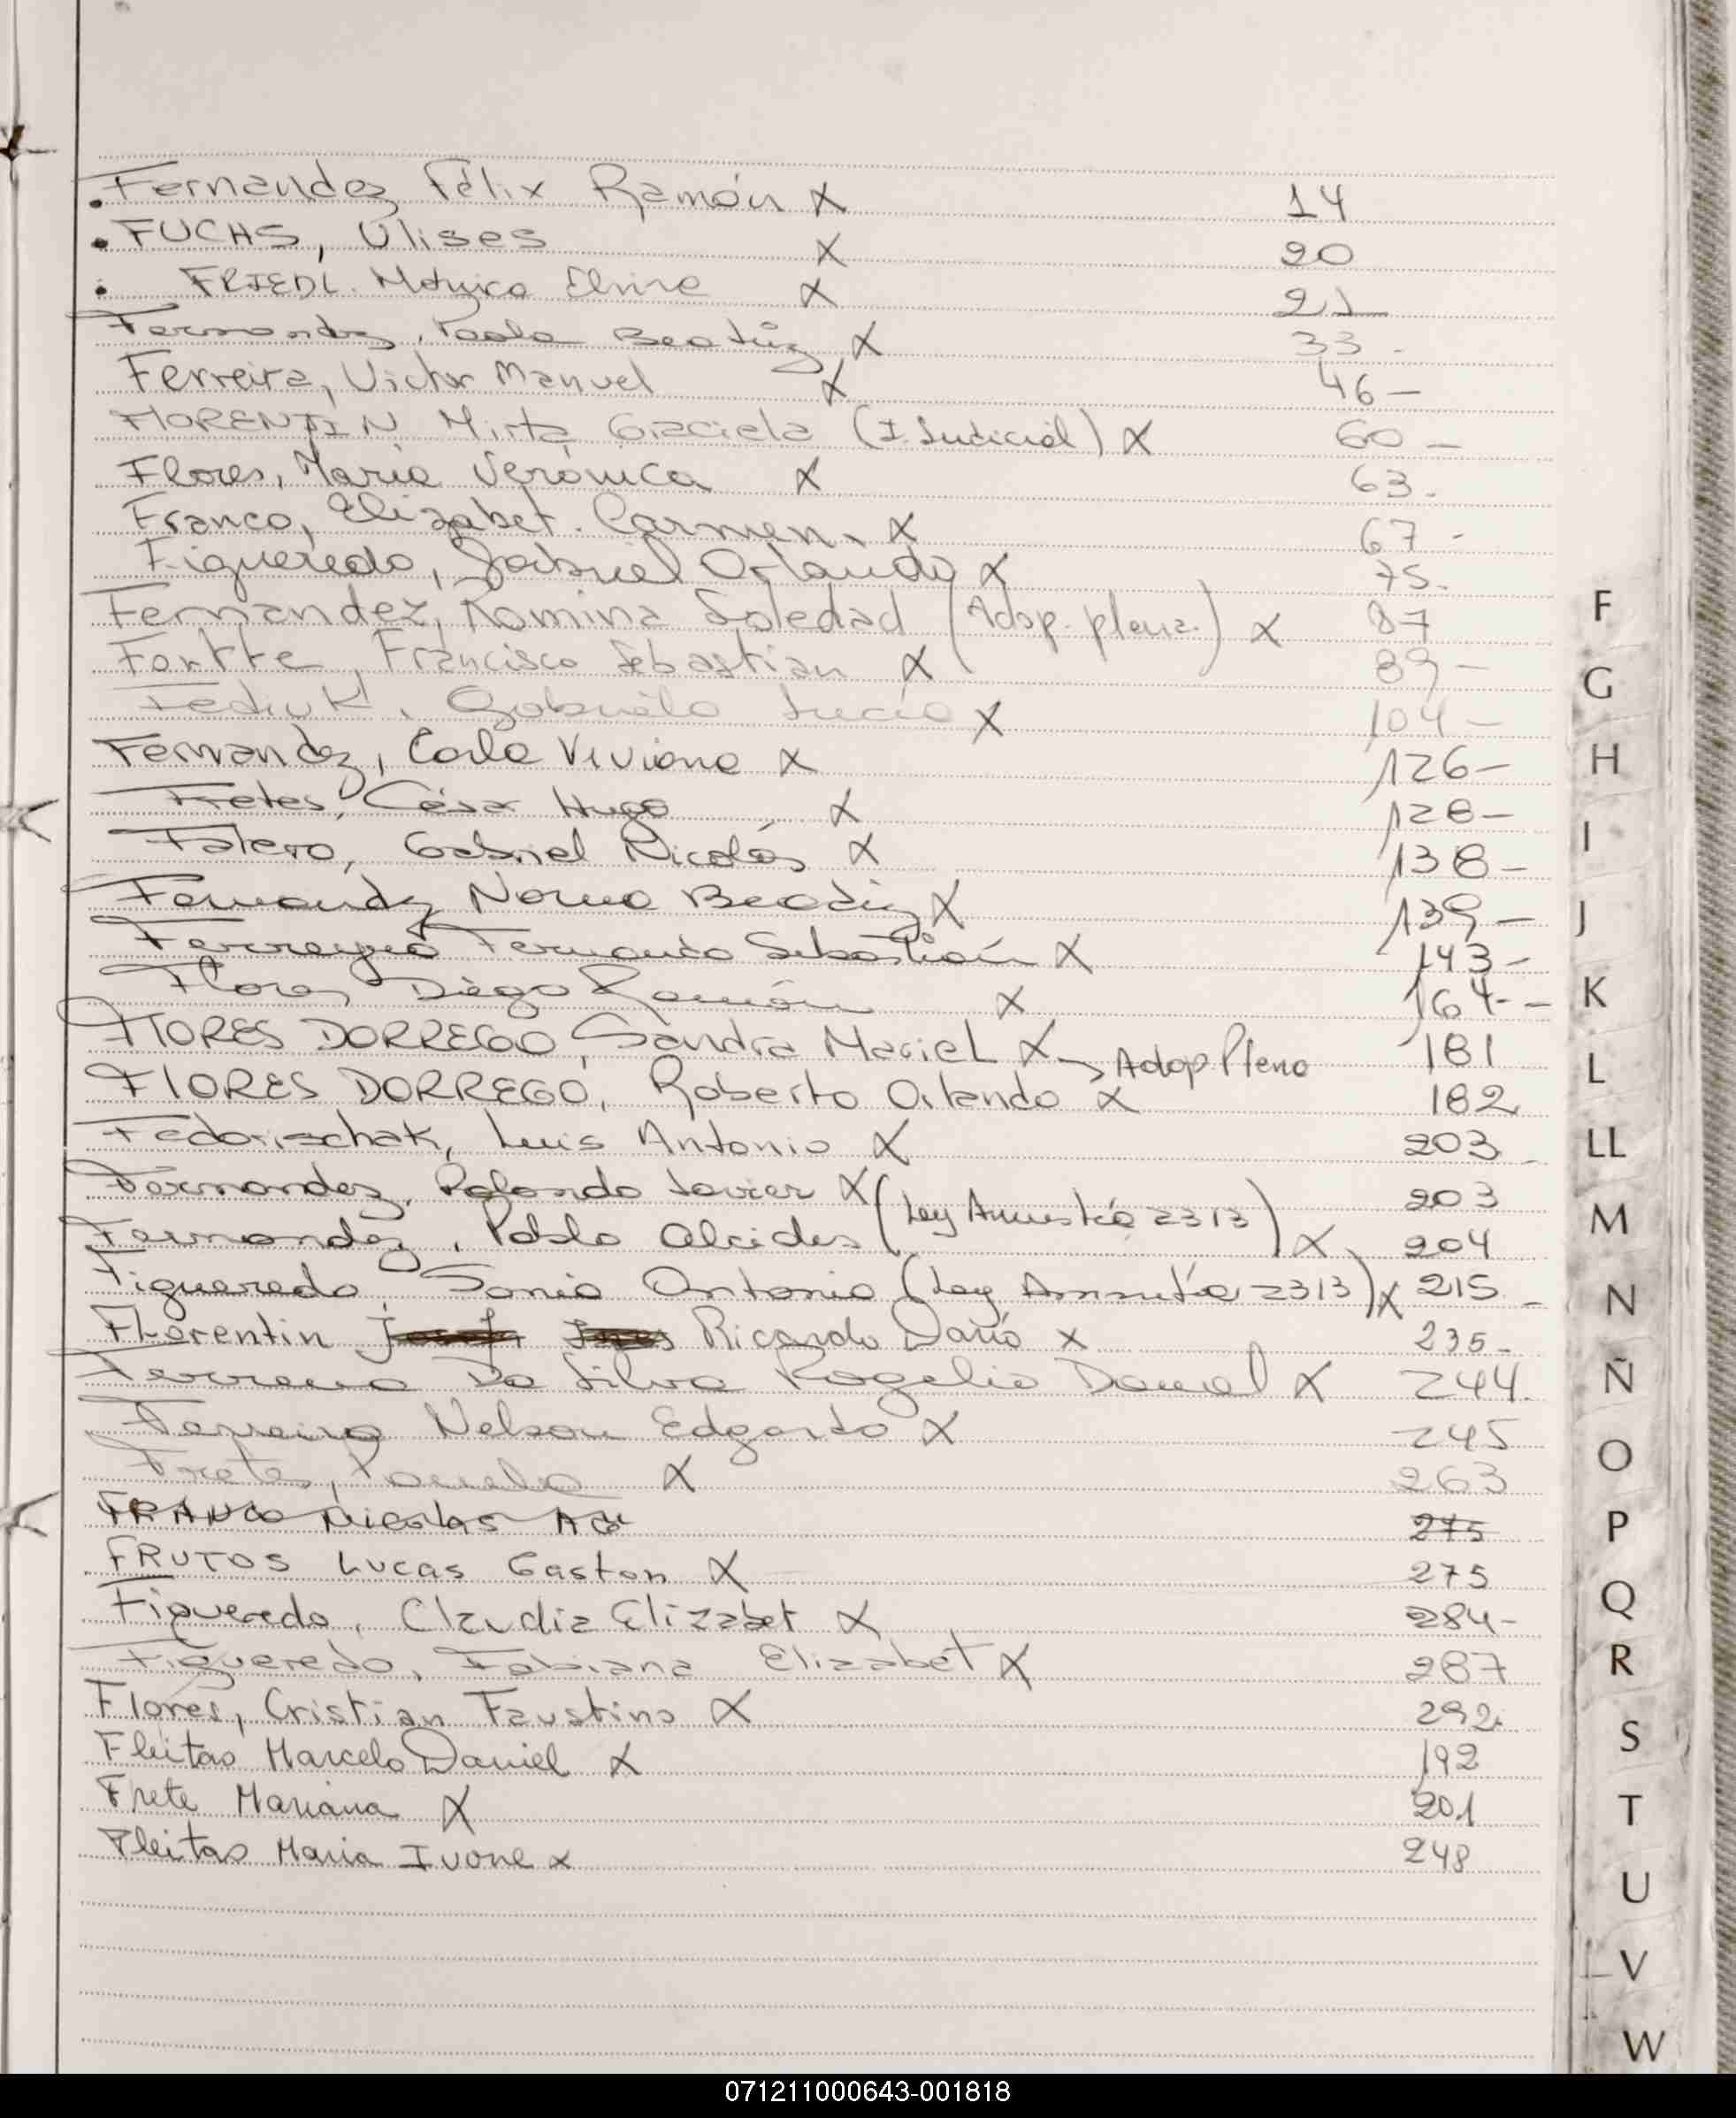 Fernandez Félix Ramón X 14
FUCHS, Ulises X 20
FRIEDL. Mónica Elvira X 21
Fernandez, Paola Beatriz X 33 -
Ferreira, Victor Manuel X 46 -
FLORENTIN Mirta Graciela (I. Judicial) X 60 -
Flores, María Verónica X 63.
Franco, Elizabet. Carmen. X 67 -
Figueredo, Gabriel Orlando X 75.
Fernandez, Romina Soledad (Adop. plena.) X 87
Fortte, Francisco Sebastian X 89 -
Fediuk, Gabriela Lucía X 104 -
Fernandez, Carla Viviana X 126 -
Fretes, César Hugo X 128 -
Falero, Gabriel Nicolás X 138 -
Fernandez Norma Beatriz X 139 -
Ferreyra Fernando Sebastián X 143 -
Flores Diego Ramón X 164 - -
FLORES DORREGO, Sandra Mariel X → Adop Plena 181
FLORES DORREGO, Roberto Orlando X 182
Fedorischak, Luis Antonio X 203 -
Fernandez, Rolando Javier X (Ley Amnistía 2313) 203
Fernandez, Pablo Alcides X 204
Figueredo, Sonia Antonia (Ley Amnistía 2313) X 215 -
Florentin Ricardo Darío X 235 -
Ferreira Da Silva Rogelio Daniel X 244.
Ferreira Nelson Edgardo X 245
Fretes, X 263
FRANCO Nicolas 275
FRUTOS Lucas Gaston X 275
Figueredo, Claudia Elizabet X 284 -
Figueredo, Fabiana Elizabet X 287
Flores, Cristian Faustino X 292
Fleitas Marcelo Daniel X 192
Frete Mariana X 201
Fleitas Maria Ivone x 248
F
G
H
I
J
K
L
LL
M
N
Ñ
O
P
Q
R
S
T
U
V
W
071211000643-001818